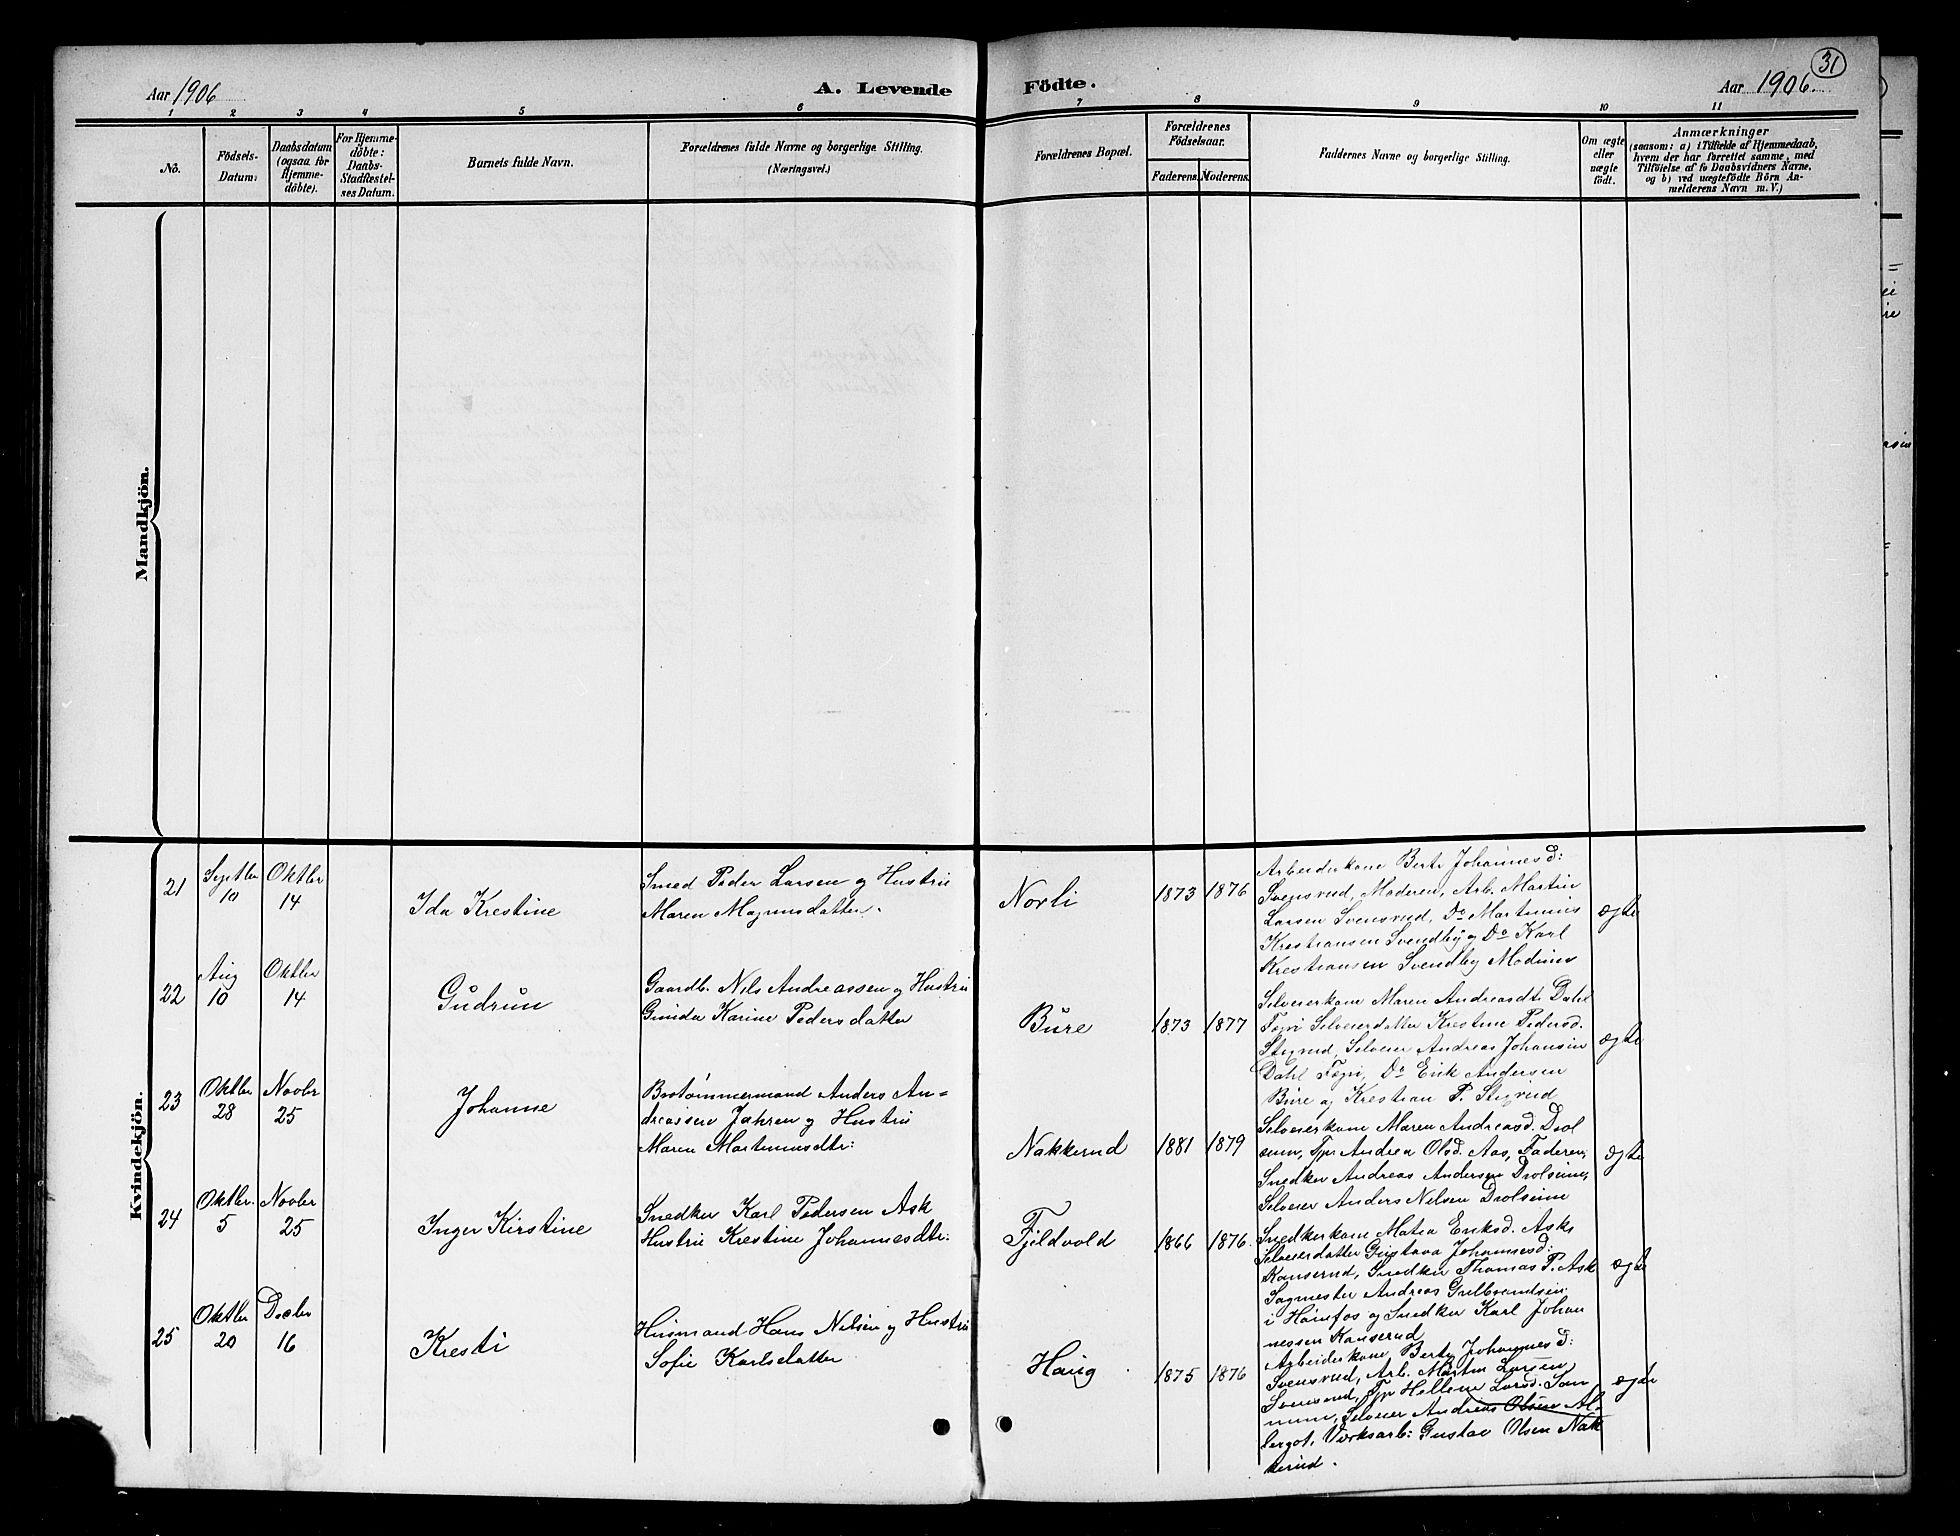 Aar 1906
A. Levende
Födte.
Aar 1906.
31
1 2 3 4 5 6 7 8 9 10 11
No.
Födsels-
Datum.
Daabsdatum
(ogsaa for
Hjemme-
döbte).
For Hjemme-
döbte:
Daabs-
Stadfæstel-
ses Datum.
Barnets fulde Navn.
Forældrenes fulde Navne og borgerlige Stilling.
(Næringsvei.)
Forældrenes Bopæl.
Forældrenes
Födselsaar.
Faderens.
Moderens.
Faddernes Navne og borgerlige Stilling.
Om ægte
eller
uægte
født.
Anmærkninger
(saasom: a) i Tilfælde af Hjemmedaab,
hvem der har forrettet samme, med
Tilføielse af to Daabsvidners Navne,
og b) ved uægtefödte Börn An-
melderens Navn m. V.)
Mandkjön.
Kvindekjön.
21
Septbr
10
Oktbr
14
Ida Krestine
Smed Peder Larsen og Hustru
Maren Magnusdatter.
Norli
1873
1876
Arbeiderkone Berte Johannesd:
Svensrud, Moderen, Arb. Martin
Larsen Svensrud, Do Martinius
Krestiansen Svendby og Do Karl
Krestiansen Svendby Modum
ægte
22
Aug
10
Oktbr
14
Gudrun
Gaardb. Nils Andreassen og Hustru
Gunda Karine Pedersdatter
Bure
1873
1877
Selveierkone Maren Andreasdt. Dahl
Selveierdatter Krestine Pedersd.
Stigrud, Selveier Andreas Johansen
Dahl Do Erik Andersen
Bure og Krestian P. Stigrud
ægte
23
Oktbr
28
Novbr
25
Johanne
Anders An=
dreassen Jahren og Hustru
Maren Martinusdtr:
Nakkerud
1881
1879
Selveierkone Maren Andreasd. Drol
sum, Tjp Andrea Olsd. Aas, Faderen,
Snedker Andreas Andersen Drolsum,
Selveier Anders Nilsen Drolsum
ægte
24
Oktbr.
5
Novbr
25
Inger Kirstine
Snedker Karl Pedersen Ask
Hustru Krestine Johannesdtr:
Fjeldvold
1866
1876.
Snedkerkone Matea Eriksd. Ask,
Selveierdatter Gustava Johannesd:
Kanserud, Snedker Thomas P. Ask
Sagmester Andreas Gulbrandsen
i Hønefos og Snedker Karl Johan
nessen Kanserud
ægte
25
Oktbr
20
Decbr
16
Kresti
Husmand Hans Nilsen og Hustru
Sofie Karlsdatter
Haug
1875
1876
Arbeiderkone Berte Johannesd:
Svensrud, Arb. Martin Larsen
Svensrud, Tjp Hellene Larsd.
Selveier Andreas Olsen Al-
bergot, Værksarb: Gustav Olsen Nak
kerud.
ægte